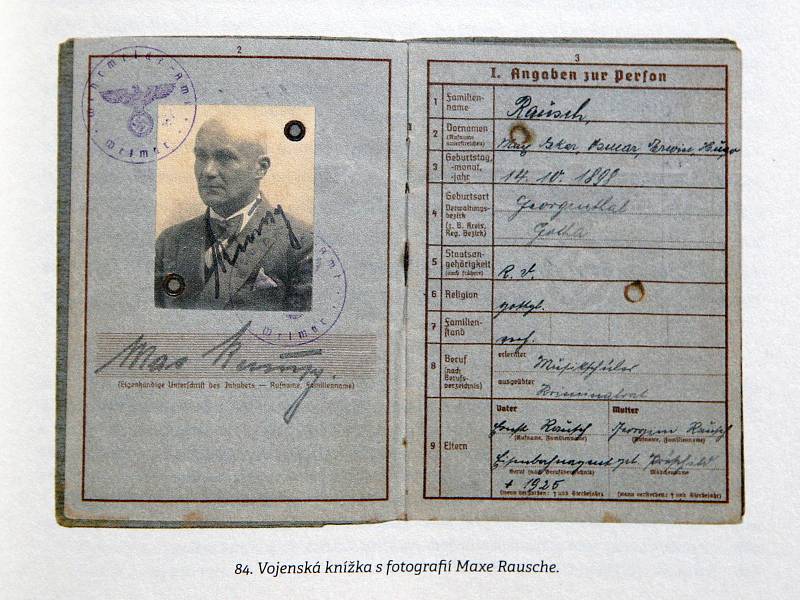 2
Wehrmelde-Amt
Weimar
Max Rausch
(Eigenhändige Unterschrift des Inhabers — Rufname, Familienname)
3
I. Angaben zur Person
1 Familien-
name
Rausch,
2 Vornamen
(Rufname
unterstreichen)
Max Oskar, Erwin, Hugo
3 Geburtstag,
-monat,
-jahr
14. 10. 1898
4 Geburtsort
Verwaltungs-
bezirk
(z. B. Kreis,
Reg. Bezirk)
Georgenthal
Gotha
5 Staatsan-
gehörigkeit
(auch frühere)
6 Religion
gottgl.
7 Familien-
stand
verh.
8 Beruf
(nach
Berufs-
verzeichnis)
erlernter
Musikschüler
ausgeübter
Kriminalrat
9 Eltern
Vater
Mutter
Ernst Rausch
Rausch
(Rufname, Familienname)
(Rufname, Familienname)
Eisenbahnagent
geb.
Beruf (nach Berufsverzeichnis)
Mädchenname
† 1925
(wenn verstorben: † und Sterbejahr)
(wenn verstorben: † und Sterbejahr)
84. Vojenská knížka s fotografií Maxe Rausche.